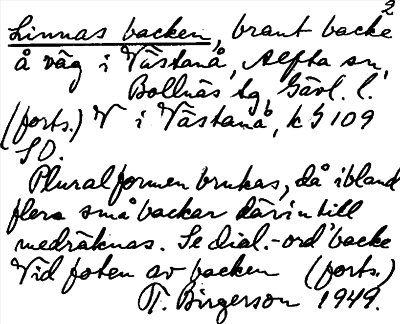 2
Linnas backen, brant backe
å väg i Västanå, Alfta sn,
Bollnäs tg, Gävl. l.
(forts.) V i Västanå, k G 109
SO.
Pluralformen brukas, då ibland
flera små backar därintill
medräknas. Se dial.-ord' backe
Vid foten av backen (forts.)
T. Birgerson 1949.